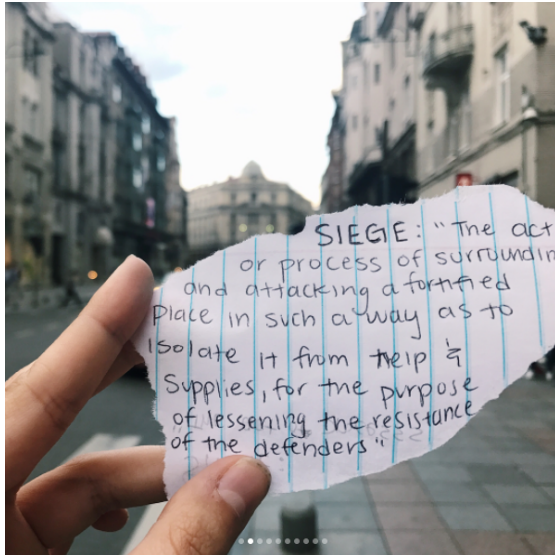 SIEGE: "The act
or process of surroundin
and attacking a fortified
place in such a way as to
isolate it from help &
supplies, for the purpose
of lessening the resistance
of the defenders"